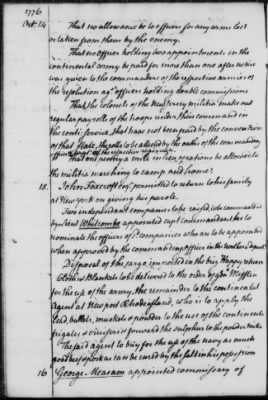 1776
Oct. 14
That no allowance be to officers for any arms lost
or taken from them by the enemy.
That no officer holding two appointments in the
continental army be paid for more than one after notice
was given to the commanders of the respective armies of
the resolution agt officers holding double commissions
That the colonels of the New Jersey militia make out
regular pay rolls of the troops under their command in
the contl. service, that have not been paid by the convention
of that State, the rolls to be attested by the oaths of the commanding
officers of the respective
That one penny a mile in lieu of rations be allowed to
the militia marching to camp and home
15. John Foxcroft esqr. permitted to return to his family
at New York on giving his parole.
Two independant companies to be raised, to be commanded
by Whitcomb appointed capt commandant & to
nominate the officers of companies who are to be appointed
when approved by the commanding officer in the northern depart.
Disposal of the cargo imported in the brig Happy return
Cloths & Blankets to be delivered to the order of gen Mifflin
for the use of the army, the remainder to the continental
agent at Newport Rhode island, who is to apply the
lead, bullets, muskets & powder to the use of the continental
frigates & cruisers & forward the sulphur to the powder mills
The said agent to buy for the use of the navy as much
good heavy as can be cured by the salt in his possession
16 George Measam appointed commissary of